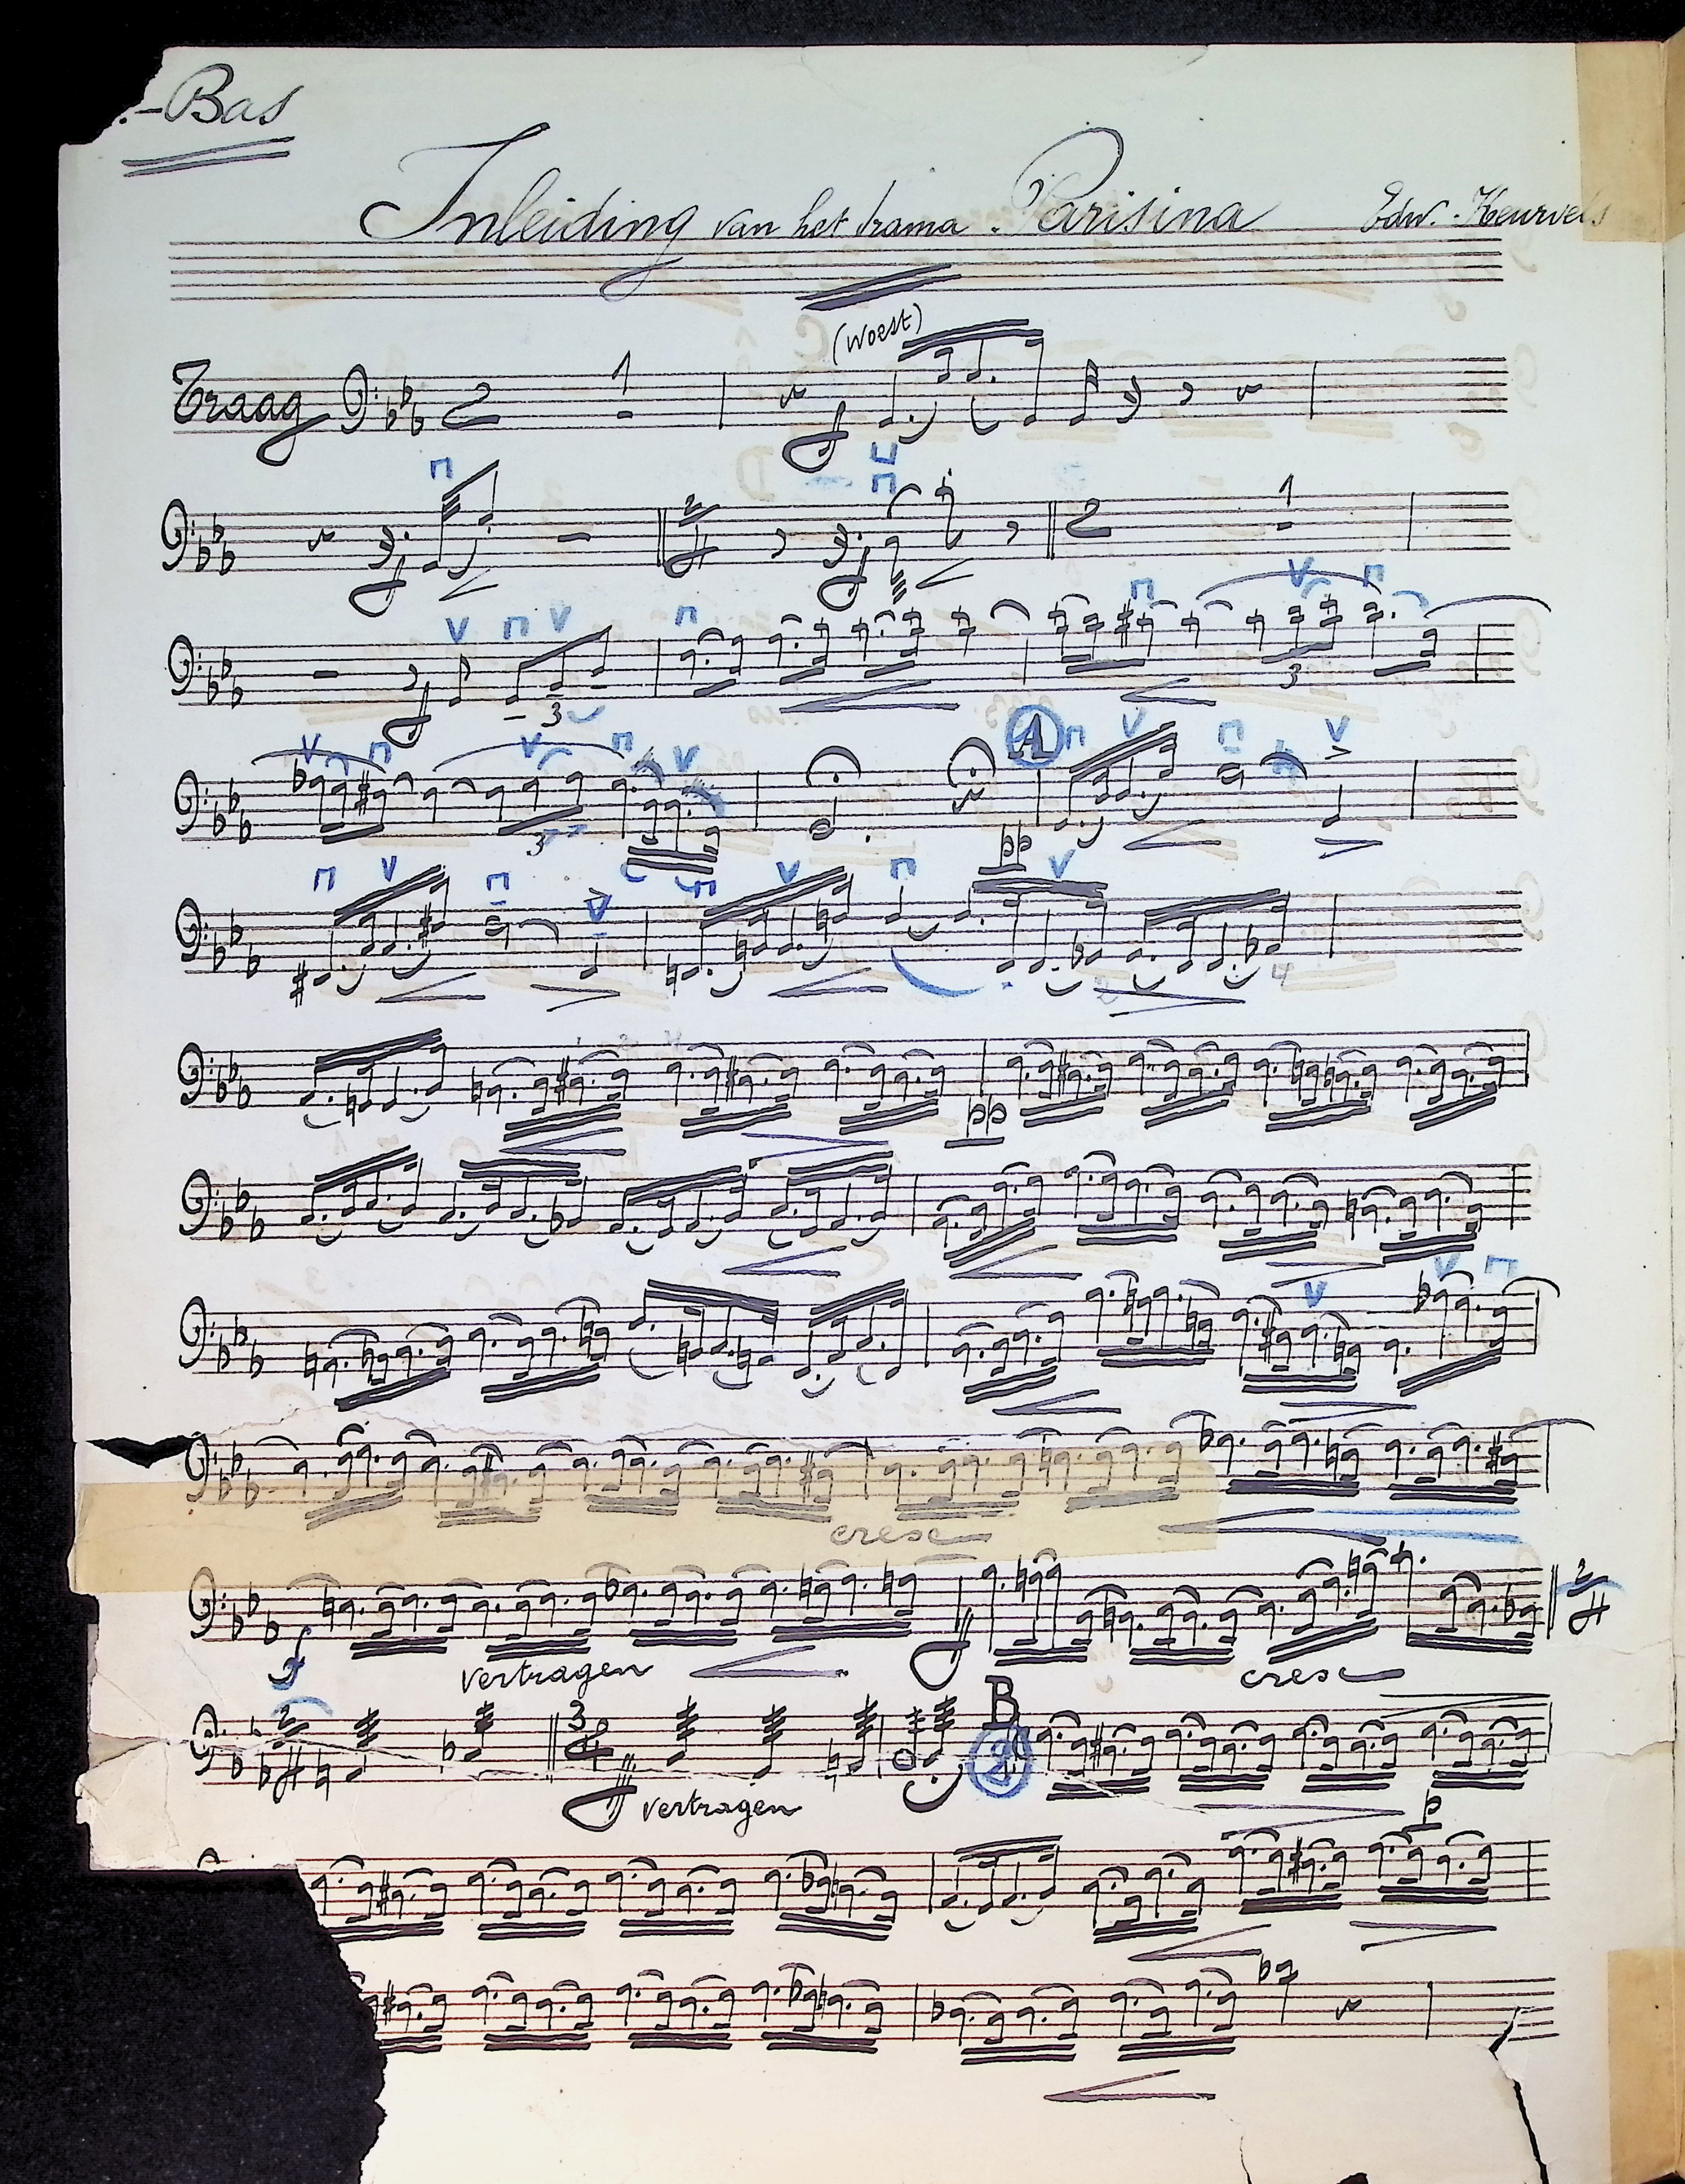 .-Bas
Inleiding van het drama Parisina Edw. Keurvels
(Woest)
Traag 2 1
2 2 1
3 3
A
3 pp
4
pp
cresc
f vertragen cresc 2
2 3 B
vertragen 2
p